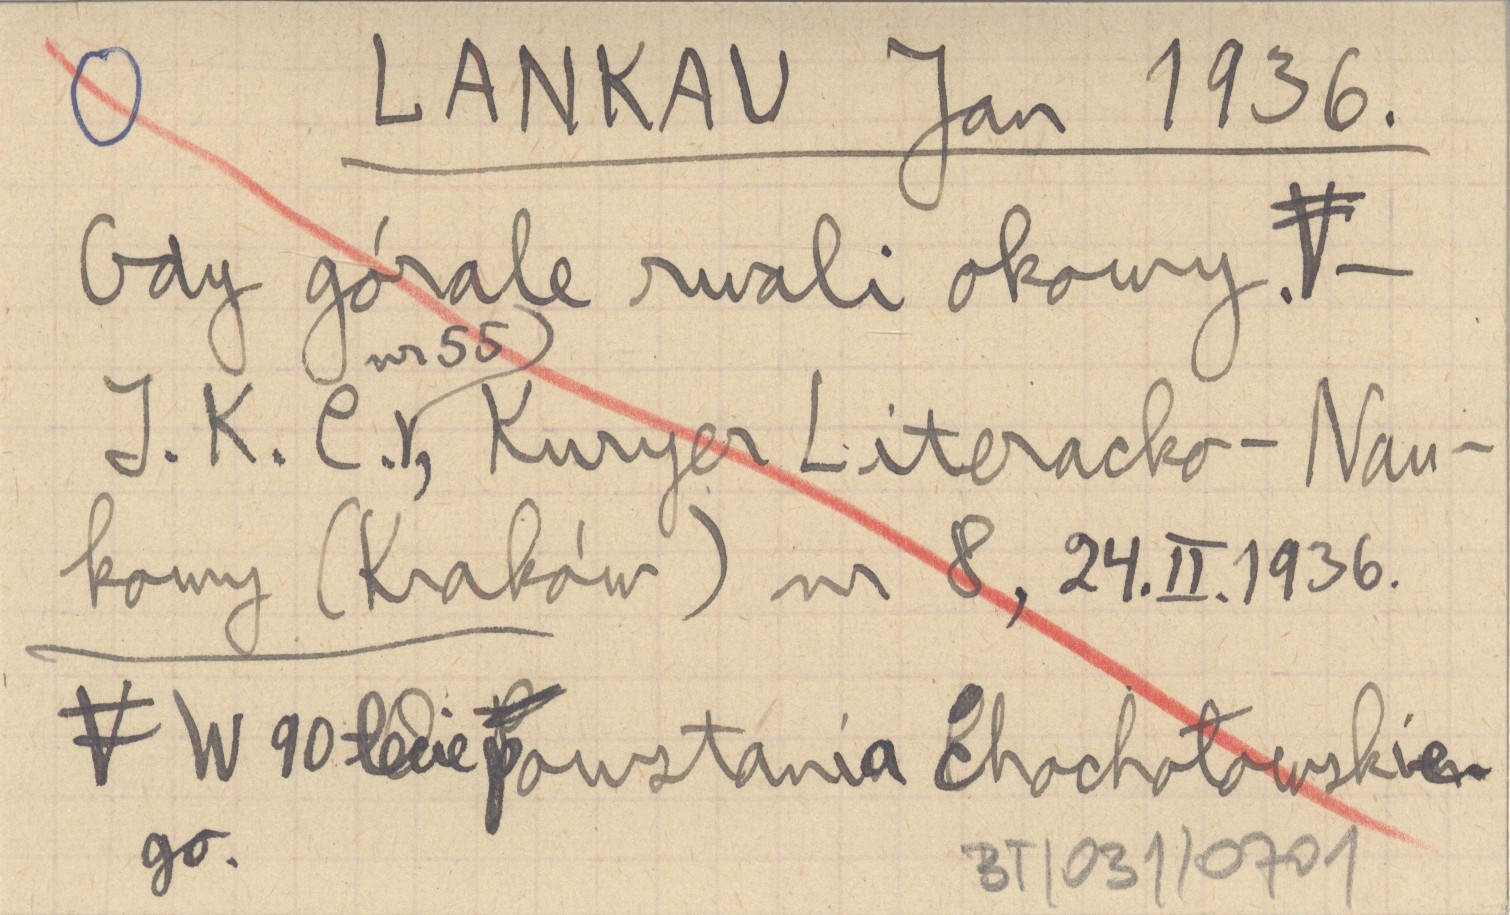 LANKAU Jan 1936.
Gdy górale rwali okowy. –
nr 55)
I. K. C., Kuryer Literacko-Nau-
kowy (Kraków) nr 8, 24.II.1936.
W 90 lecie powstania Chochołowskie-
go.
BT/031/0701